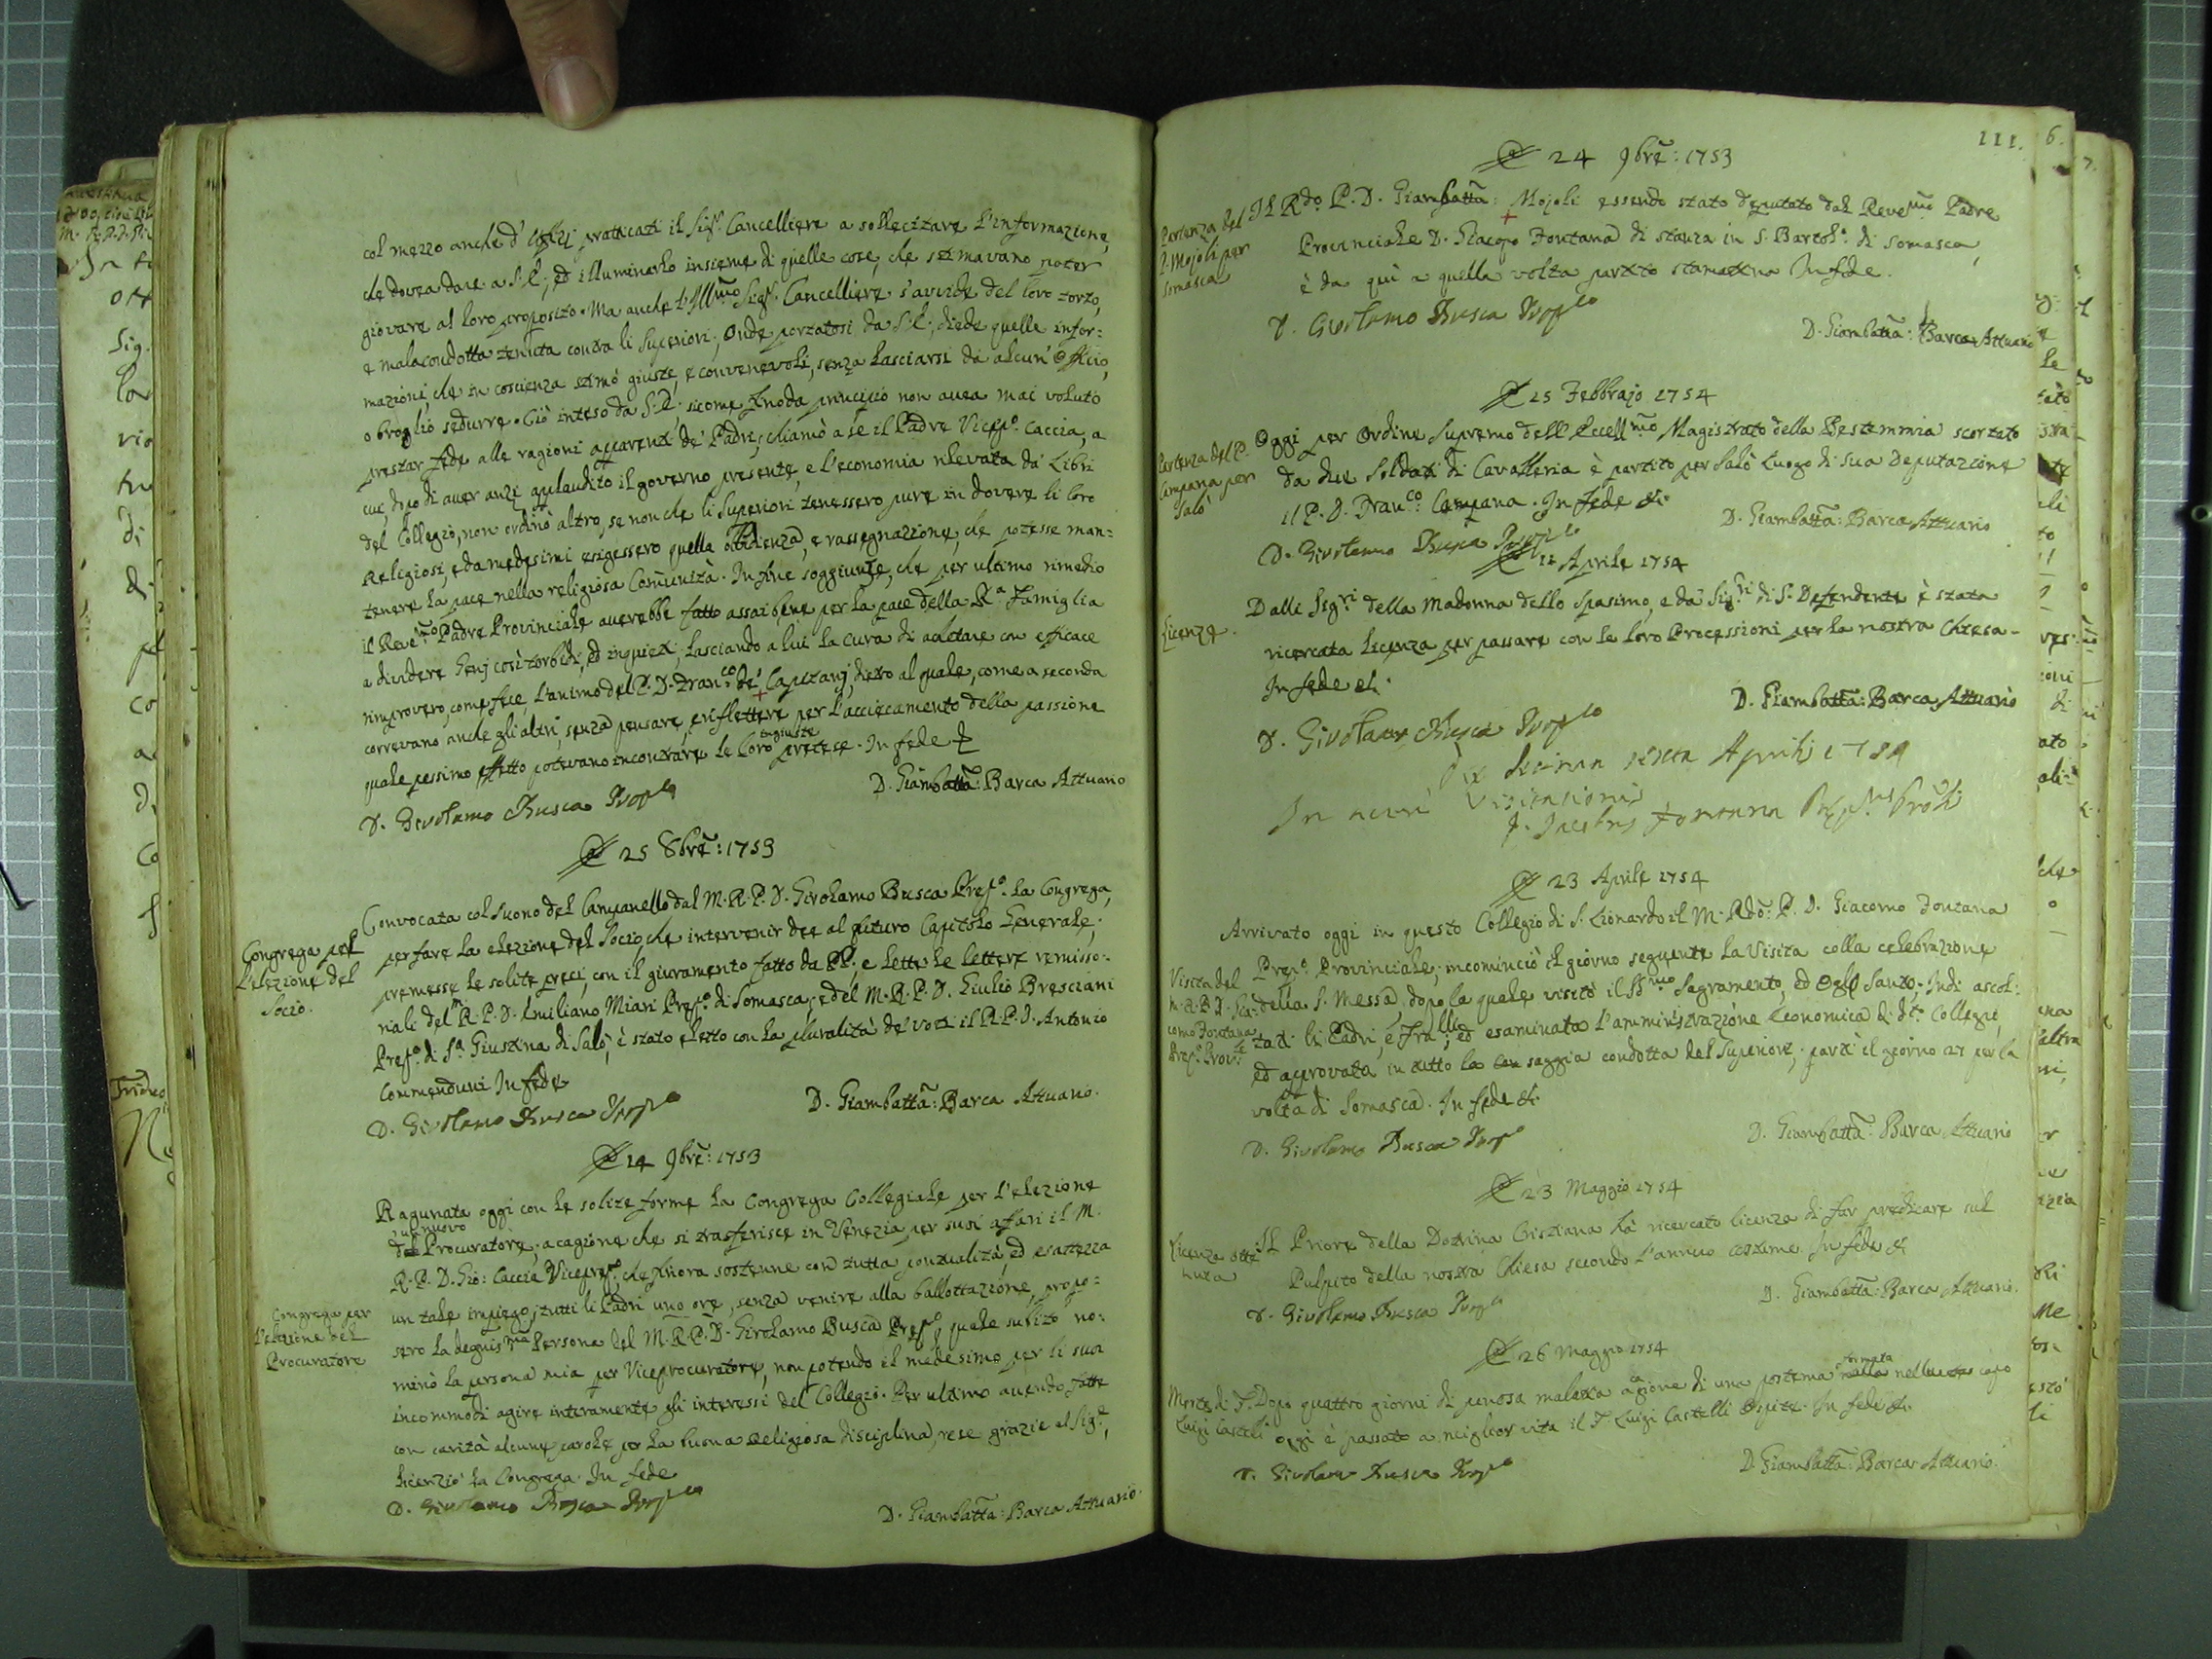 col mezzo anche d'Uffizj pratticati il Sig.r Cancelliere a sollecitare l'informazione,
che dovea dare a S. E., ed illuminarlo insieme di quelle cose, che stimavano poter
giovare al loro proposito. Ma anche l'Ill.mo Sig.r Cancelliere s'avvide del loro torto,
e malacondotta tenuta contra li Superiori; Onde portatosi da S. E., diede quelle infor:
mazioni, che in coscienza stimò giuste, e convenevoli, senza lasciarsi da alcun' Officio,
o broglio sedurre. Ciò inteso da S. E. sicome fino da principio non avea mai voluto
prestar fede alle ragioni apparenti de' Padri, chiamò a se il Padre Vicep.o Caccia, a
cui, dopo di aver anzi applaudito il governo presente, e l'economia rilevata da' Libri
del Collegio, non ordinò altro, se non che li Superiori tenessero pure in dovere li loro
Religiosi, e da medesimi esigessero quella obbidienza, e rassegnazione, che potesse man=
tenere la pace nella religiosa Comunità. In fine soggiunse, che per ultimo rimedio
il Reve.mo Padre Provinciale averebbe fatto assai bene per la pace della R.a Famiglia
a dividere Genj così torbidi, ed inquieti, lasciando a lui la cura di achetare con efficace
rimprovero, come fece, l'animo del P. D. Fran.co de' Capitanj, dietro al quale, come a seconda
correvano anche gli altri, senza pensare, e riflettere per l'acciecamento della passione
quale pessimo effetto potevano incontrare le loro ingiuste pretese. In fede &
D. Girolamo Busca Prep.to
D. Giambatta: Barca Attuario
Æ 25 8bre: 1753
Congrega pel
l'elezione del
Socio.
Convocata col suono del Campanello dal M. R. P. D. Girolamo Busca Prep.o la Congrega,
per fare la elezione del Socio, che intervenir dee al futuro Capitolo Generale;
premesse le solite preci, con il giuramento fatto da PP., e lette le lettere remisso:
riali del M. R. P. D. Emiliano Miari Prep.o di Somasca, e del M. R. P. D. Giulio Bresciani
Prep.o di S.a Giustina di Salò, è stato eletto con la pluralità de' voti il R. P. D. Antonio
Commenduni In fede
D. Girolamo Busca Prep.to
D. Giambatta: Barca Attuario.
Æ 14 9bre: 1753
Congrega per
l'elezione del
Procuratore
Ragunata oggi con le solite forme la Congrega Collegiale per l'elezione
d'un nuovo Procuratore, a cagione che si trasferisce in Venezia per suoi affari il M.
R. P. D. Gio: Caccia Viceprep.o, che finora sostenne con tutta pontualità, ed esattezza
un tale impiego; tutti li Padri uno ore, senza venire alla ballottazione, propo=
sero la degnis.ma Persona del M. R. P. D. Girolamo Busca Prep.o, quale subito no:
minò la persona mia per Viceprocuratore, non potendo il medesimo per li suoi
incommodi agire interamente gli interessi del Collegio. Per ultimo avendo fatte
con carità alcune parole per la buona religiosa disciplina, rese grazie al Sig.re,
licenziò la Congrega. In fede
D. Girolamo Busca Prep.to
D. Giambatta: Barca Attuario.
111.
Æ 24 9bre: 1753
Partenza del
P. Mojoli per
Somasca
Il R.do P. D. Giambatta: Mojoli essendo stato deputato dal Reve.mo Padre
Provinciale D. Giacopo Fontana di stanza in S. Bartol.o di Somasca,
è da quì a quella volta partito stamattina In fede.
D. Girolamo Busca Prep.to
D. Giambatta: Barca Attuario
Æ 25 Febbrajo 1754
Partenza del P.
Campana per
Salò
Oggi per Ordine Supremo dell'Eccell.mo Magistrato della Bestemmia scortato
da due Soldati di Cavalleria è partito per Salò Luogo di sua Deputazione
il P. D. Fran.co Campana. In fede &.
D. Girolamo Busca Prep.to
D. Giambatta: Barca Attuario
Æ 12 Aprile 1754
Licenze.
Dalli Sig.ri della Madonna dello Spasimo, e da' Sig.ri di S. Defendente è stata
ricercata licenza per passare con le loro Processioni per la nostra Chiesa.
In fede &.
D. Girolamo Busca Prep.to
D. Giambatta: Barca Attuario
Die decima sexta Aprilis 1754
In actu Visitationis
D. Jacobus Fontana Prep.tus Prov.lis
Æ 23 Aprile 1754
Visita del
M. R. P. D. Gia:
como Fontana
Prep. Prov.le
Arrivato oggi in questo Collegio di S. Lionardo il M. Rdo: P. D. Giacomo Fontana
Prep.o Provinciale, incominciò il giorno seguente la Visita colla celebrazione
della S. Messa, dopo la quale visitò il SS.mo Sagramento, ed Oglj Santo, Indi ascol:
tati li Padri, e Fra.lli, ed esaminata l'amministrazione economica di d.to Collegio,
ed approvata in tutto la saggia condotta del Superiore, partì il giorno 27 per la
volta di Somasca. In fede &.
D. Girolamo Busca Prep.to
D. Giambatta: Barca Attuario
Æ 23 Maggio 1754
Licenza otte
nuta
Il Priore della Dotrina Cristiana hà ricercato licenza di far predicare sul
Pulpito della nostra Chiesa secondo l'annuo costume. In fede &
D. Girolamo Busca Prep.to
D. Giambatta: Barca Attuario.
Æ 26 Maggio 1754
Morte di F.
Luigi Castelli
Dopo quattro giorni di penosa malatia a cagione di una postema formata nel capo
oggi è passato a miglior vita il F. Luigi Castelli Ospite. In fede &.
D. Girolamo Busca Prep.to
D. Giambatta: Barca Attuario.